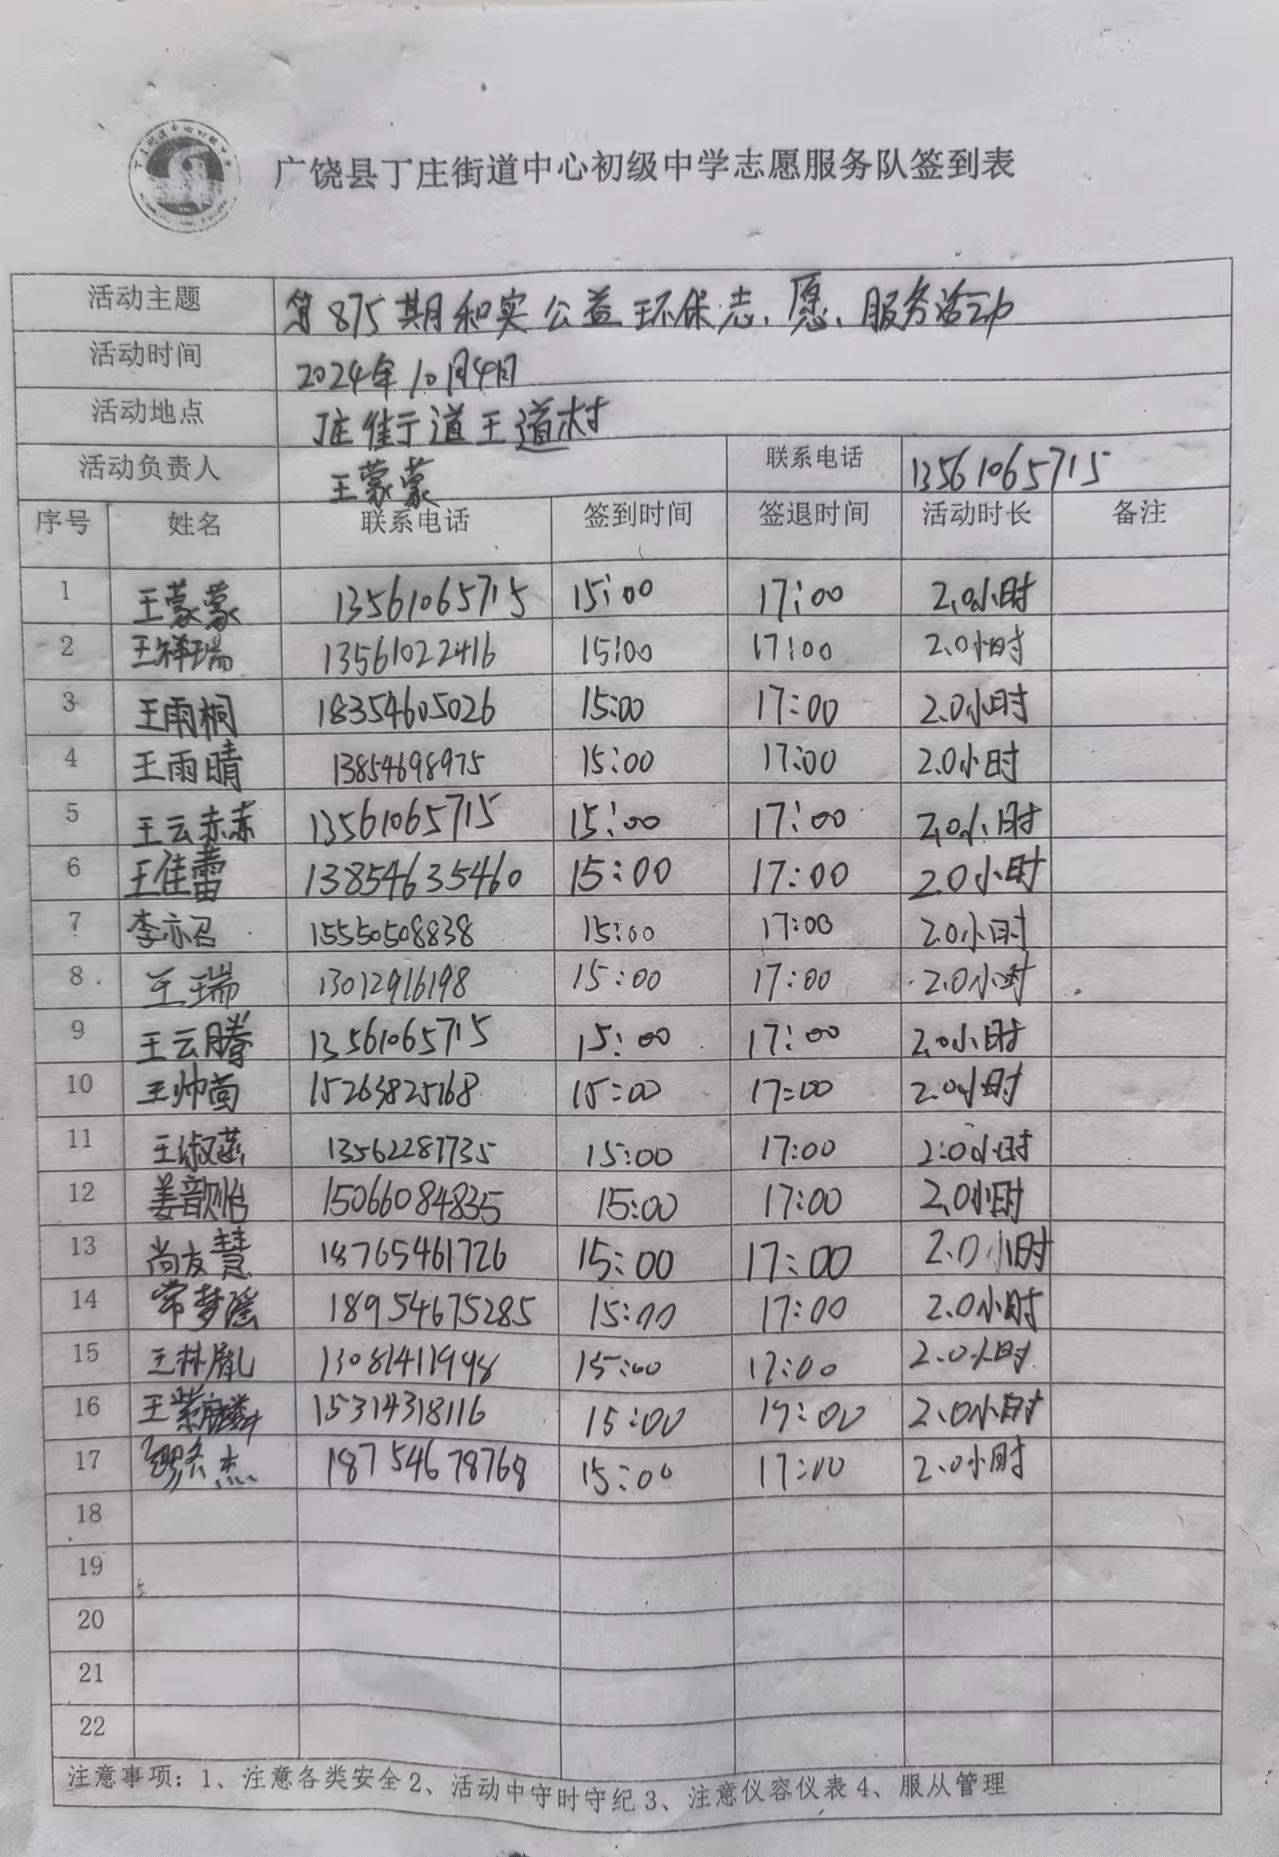 广饶县丁庄街道中心初级中学志愿服务队签到表
活动主题 第875期和实公益环保志愿服务活动
活动时间 2024年10月4日
活动地点 丁庄街道王道村
活动负责人 王蒙蒙 联系电话 13561065715
序号 姓名 联系电话 签到时间 签退时间 活动时长 备注
1 王蒙蒙 13561065715 15:00 17:00 2.0小时
2 王祥瑞 13561022416 15:00 17:00 2.0小时
3 王雨桐 18354605026 15:00 17:00 2.0小时
4 王雨晴 13854698975 15:00 17:00 2.0小时
5 王云赫 13561065715 15:00 17:00 2.0小时
6 王佳蕾 13854635460 15:00 17:00 2.0小时
7 李亦召 15550508838 15:00 17:00 2.0小时
8 王瑞 13012916198 15:00 17:00 2.0小时
9 王云腾 13561065715 15:00 17:00 2.0小时
10 王帅 15263825168 15:00 17:00 2.0小时
11 王淑蕊 13562287735 15:00 17:00 2.0小时
12 姜歆怡 15066084835 15:00 17:00 2.0小时
13 尚友慧 18765461726 15:00 17:00 2.0小时
14 常梦瑶 18954675285 15:00 17:00 2.0小时
15 王林胤 13081411998 15:00 17:00 2.0小时
16 王紫麟 15314318116 15:00 17:00 2.0小时
17 杰 18754678768 15:00 17:00 2.0小时
18
19
20
21
22
注意事项：1、注意各类安全2、活动中守时守纪3、注意仪容仪表4、服从管理